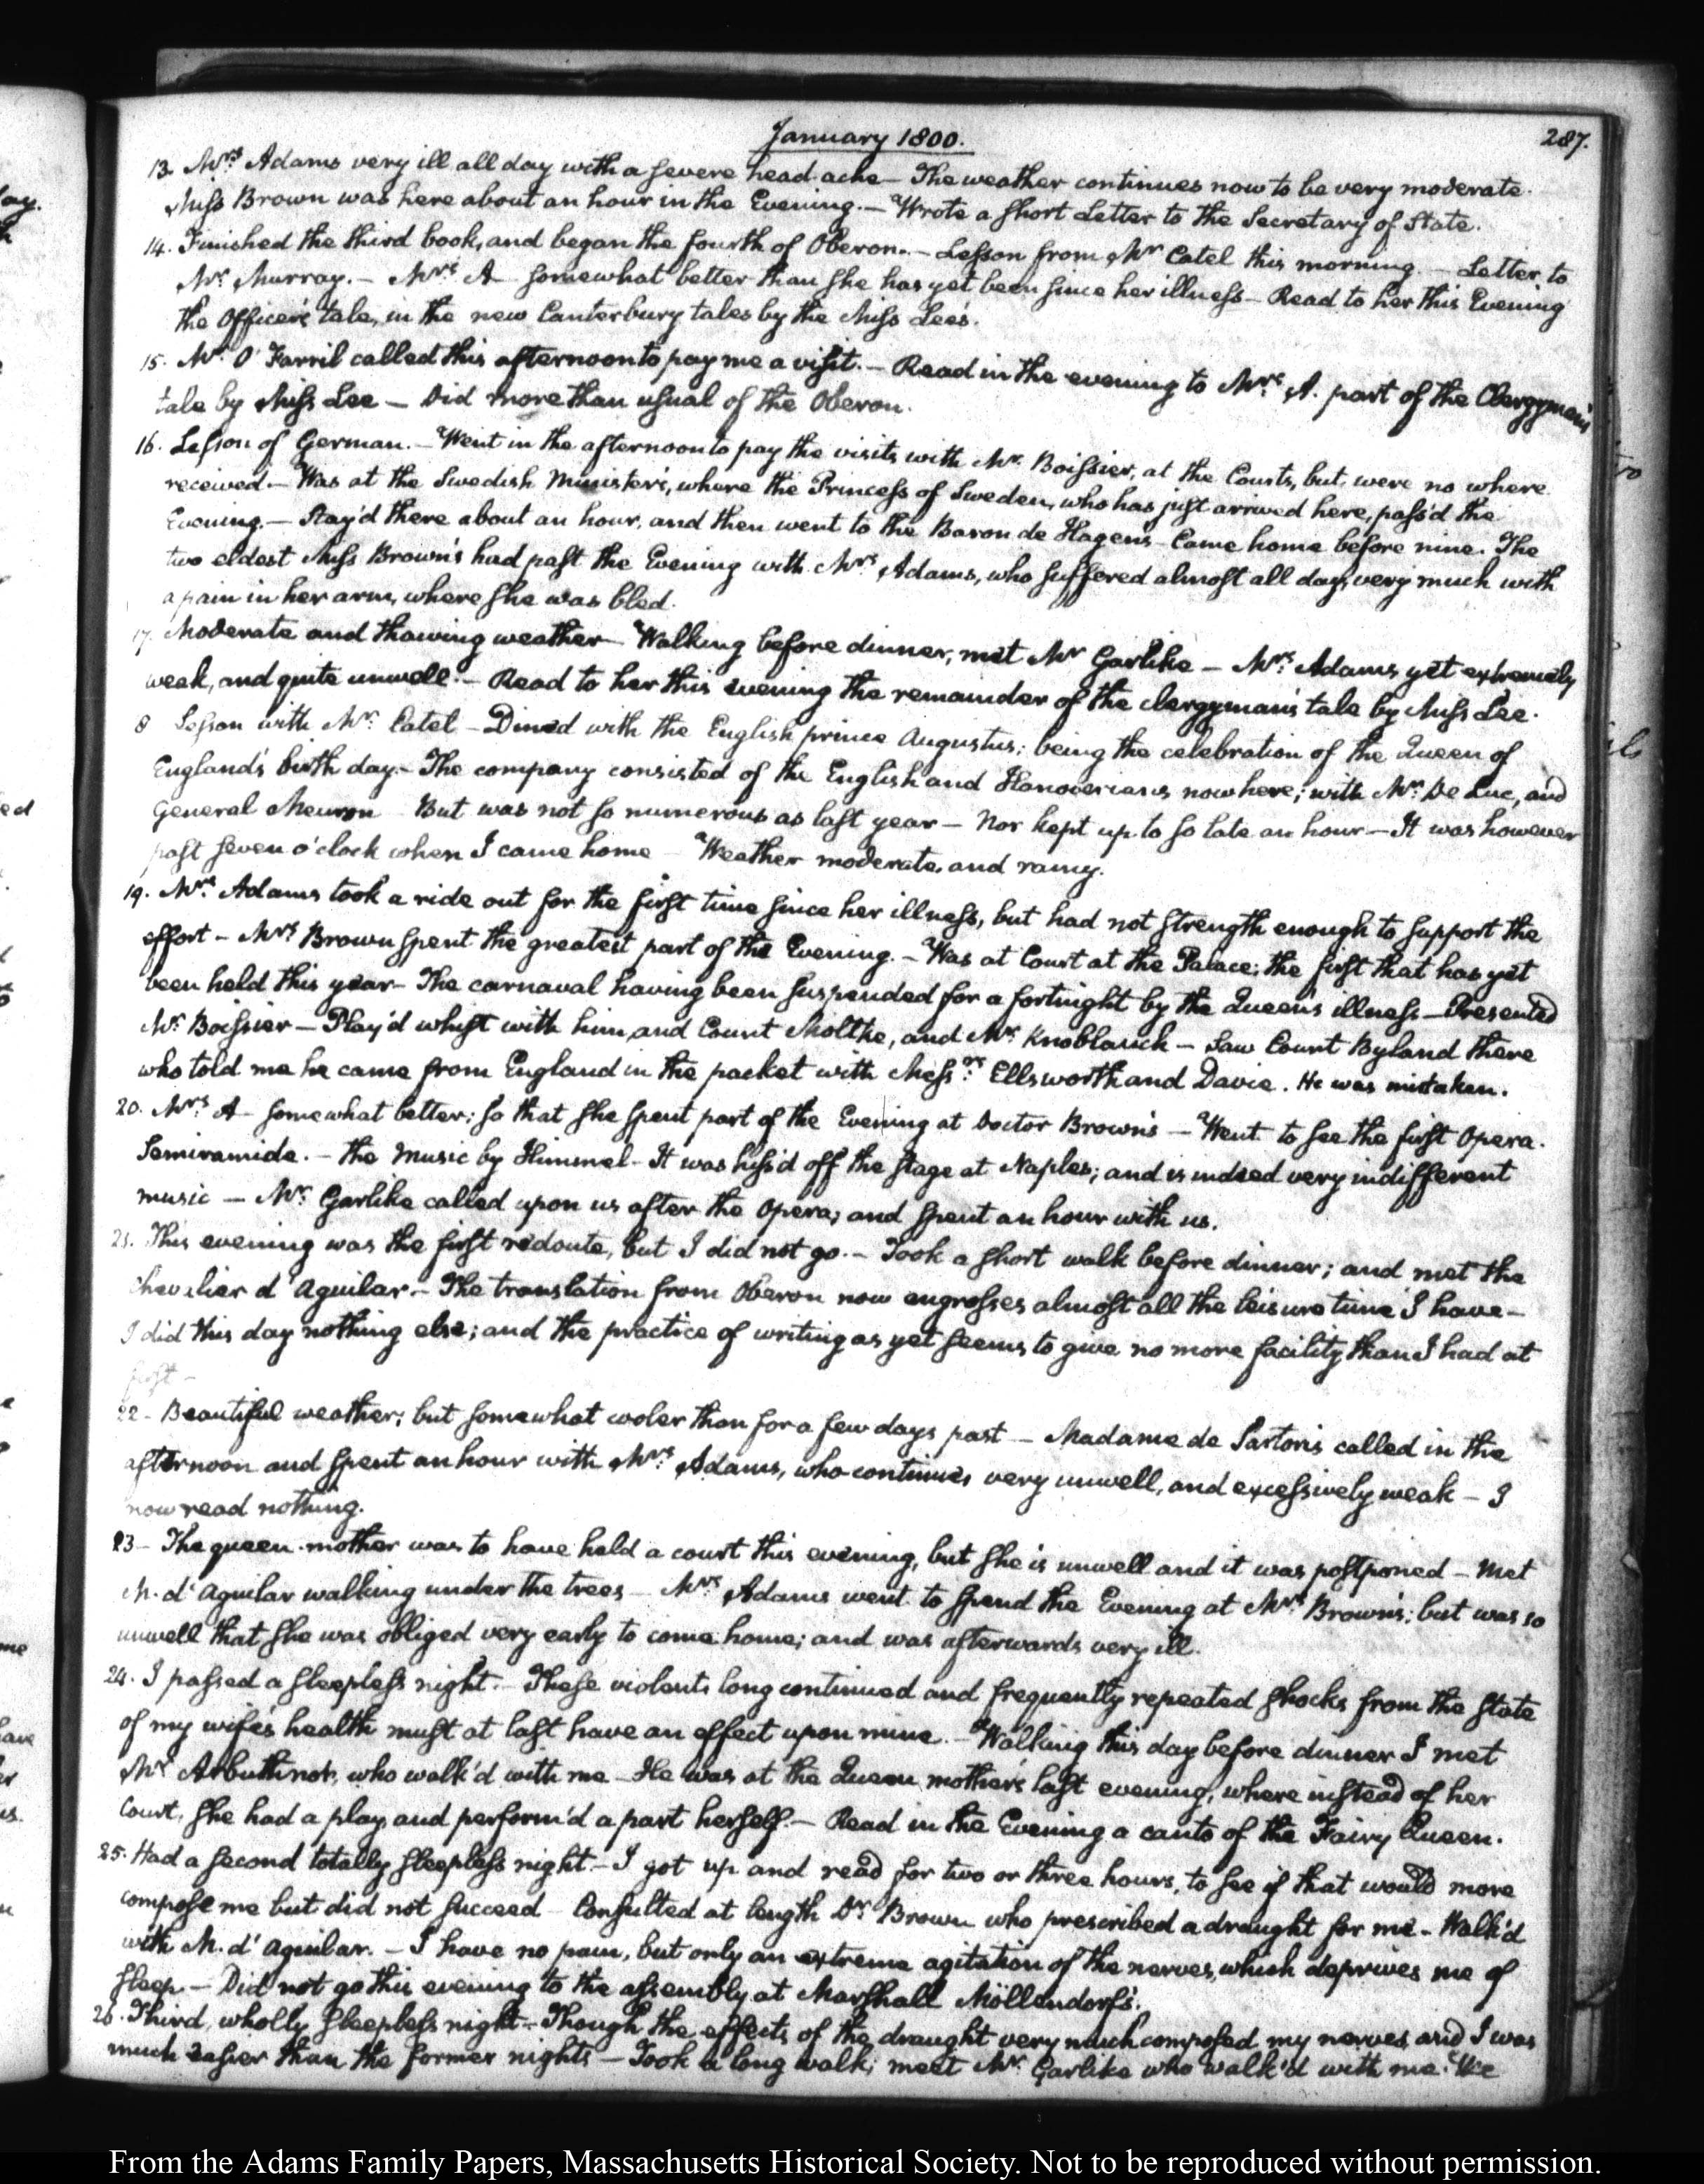 January 1800.
287.
13. Mrs. Adams very ill all day with a severe head-ache — The weather continues now to be very moderate.
Miss Brown was here about an hour in the Evening. — Wrote a short Letter to the Secretary of State.
14. Finished the third book, and began the fourth of Oberon. — Lesson from Mr. Catel this morning. — Letter to
Mr. Murray. — Mrs. A somewhat better than she has yet been since her illness — Read to her this Evening
the Officer's tale, in the new Canterbury tales by the Miss Lee's.
15. Mr. O'Farril called this afternoon to pay me a visit. — Read in the evening to Mrs. A. part of the Clergyman's
tale by Miss Lee — Did more than usual of the Oberon.
16. Lesson of German. — Went in the afternoon to pay the visits with Mr. Boissier, at the Courts, but were no where
received. — Was at the Swedish Minister's, where the Princess of Sweden, who has just arrived here, pass'd the
Evening. — Stay'd there about an hour, and then went to the Baron de Hagen's — Came home before nine. The
two eldest Miss Brown's had past the Evening with Mrs. Adams, who suffered almost all day, very much with
a pain in her arm, where she was bled.
17. Moderate and thawing weather — Walking before dinner, met Mr Garlike — Mrs. Adams yet extremely
weak, and quite unwell. — Read to her this evening the remainder of the clergyman's tale by Miss Lee.
8 Lesson with Mr. Catel — Dined with the English prince Augustus; being the celebration of the Queen of
England's birth day. — The company consisted of the English and Hanoverians now here; with Mr. De Luc, and
General Meuron But was not so numerous as last year — Nor kept up to so late an hour — It was however
past seven o'clock when I came home — Weather moderate, and rainy.
19. Mrs. Adams took a ride out for the first time since her illness, but had not strength enough to support the
effort — Mrs. Brown spent the greatest part of the Evening. — Was at Court at the Palace; the first that has yet
been held this year — The carnaval having been suspended for a fortnight by the Queen's illness — Presented
Mr. Boissier — Play'd whist with him, and Count Moltke, and Mr. Knoblauch — Saw Count Byland there
who told me he came from England in the packet with Messrs. Ellsworth and Davie. He was mistaken.
20. Mrs. A — somewhat better; so that she spent part of the Evening at Doctor Brown's — Went to see the first Opera.
Semiramide. — the Music by Himmel — It was hiss'd off the stage at Naples; and is indeed very indifferent
music — Mr. Garlike called upon us after the Opera; and spent an hour with us.
21. This evening was the first redoute, but I did not go. — Took a short walk before dinner; and met the
Chevalier d'Aguilar. — The translation from Oberon now engrosses almost all the leisure time I have —
I did this day nothing else; and the practice of writing as yet seems to give no more facility than I had at
first —
22 — Beautiful weather; but somewhat cooler than for a few days past — Madame de Sartoris called in the
afternoon and spent an hour with Mrs. Adams, who continues very unwell, and excessively weak — I
now read nothing.
23 — The queen-mother was to have held a court this evening, but she is unwell and it was postponed — Met
M. d'Aguilar walking under the trees — Mrs. Adams went to spend the Evening at Mrs. Brown's; but was so
unwell that she was obliged very early to come home; and was afterwards very ill.
24. I passed a sleepless night. — These violent, long continued and frequently repeated shocks from the state
of my wife's health must at last have an effect upon mine. — Walking this day before dinner I met
Mr. Arbuthnot, who walk'd with me — He was at the Queen mother's last evening, where instead of her
Court, she had a play, and perform'd a part herself. — Read in the Evening a canto of the Fairy Queen.
25. Had a second totally sleepless night. — I got up and read for two or three hours, to see if that would more
compose me but did not succeed — Consulted at length Dr. Brown who prescribed a draught for me — Walk'd
with M. d'Aguilar. — I have no pain, but only an extreme agitation of the nerves, which deprives me of
sleep. — Did not go this evening to the assembly at Marshall Möllendorf's.
26. Third, wholly sleepless night — Though the effects of the draught very much composed my nerves and I was
much easier than the former nights — Took a long walk; meet Mr. Garlike who walk'd with me. We
From the Adams Family Papers, Massachusetts Historical Society. Not to be reproduced without permission.